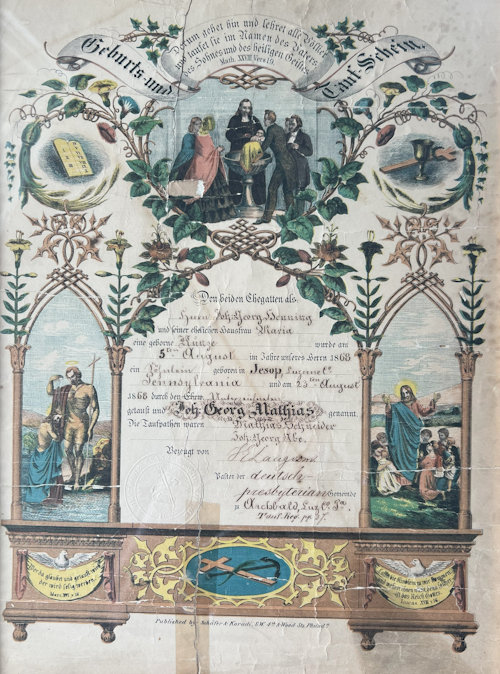 Darum gehet hin und lehret alle Völker
und taufet sie im Namen des Vaters
des Sohnes und des heiligen Geistes.
Math. XXVIII Vers 19.
Geburts und Tauf-Schein.
Den beiden Ehegatten als
Herrn Joh. Georg Henning
und seiner ehelichen Hausfrau Maria
eine geborne Kunze wurde am
5ten August im Jahre unseres Herrn 1868
ein Söhnlein geboren in Jesop, Luzerne Co.
Pennsylvania und am 23ten August
1868 durch den Ehrw. Unterzeichneten
getauft und Joh. Georg Mathias genannt.
Die Taufpathen waren Mathias Schneider
Joh. Georg Abe.
Bezeugt von
Pastor der deutsch-
presbyterian Gemeinde
in Archbald, Luz. Co. Pa.
Tauf Reg. pg. 37.
Wer da glaubet und getauft wird
der wird selig werden.
Marc. XVI v. 16
Lasset die Kindlein zu mir kommen
und wehret ihnen nicht, denn
ist das Reich Gottes.
Published by Schäfer & Koradi, S.W. 4th & Wood Sts. Philada.